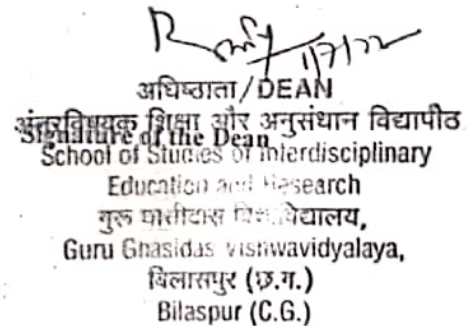 1/7/22
अधिष्ठाता/DEAN
अंतरविषयक शिक्षा और अनुसंधान विद्यापीठ
Signature of the Dean
School of Studies of Interdisciplinary
Education and Research
गुरू घासीदास विश्वविद्यालय,
Guru Ghasidas Vishwavidyalaya,
बिलासपुर (छ.ग.)
Bilaspur (C.G.)